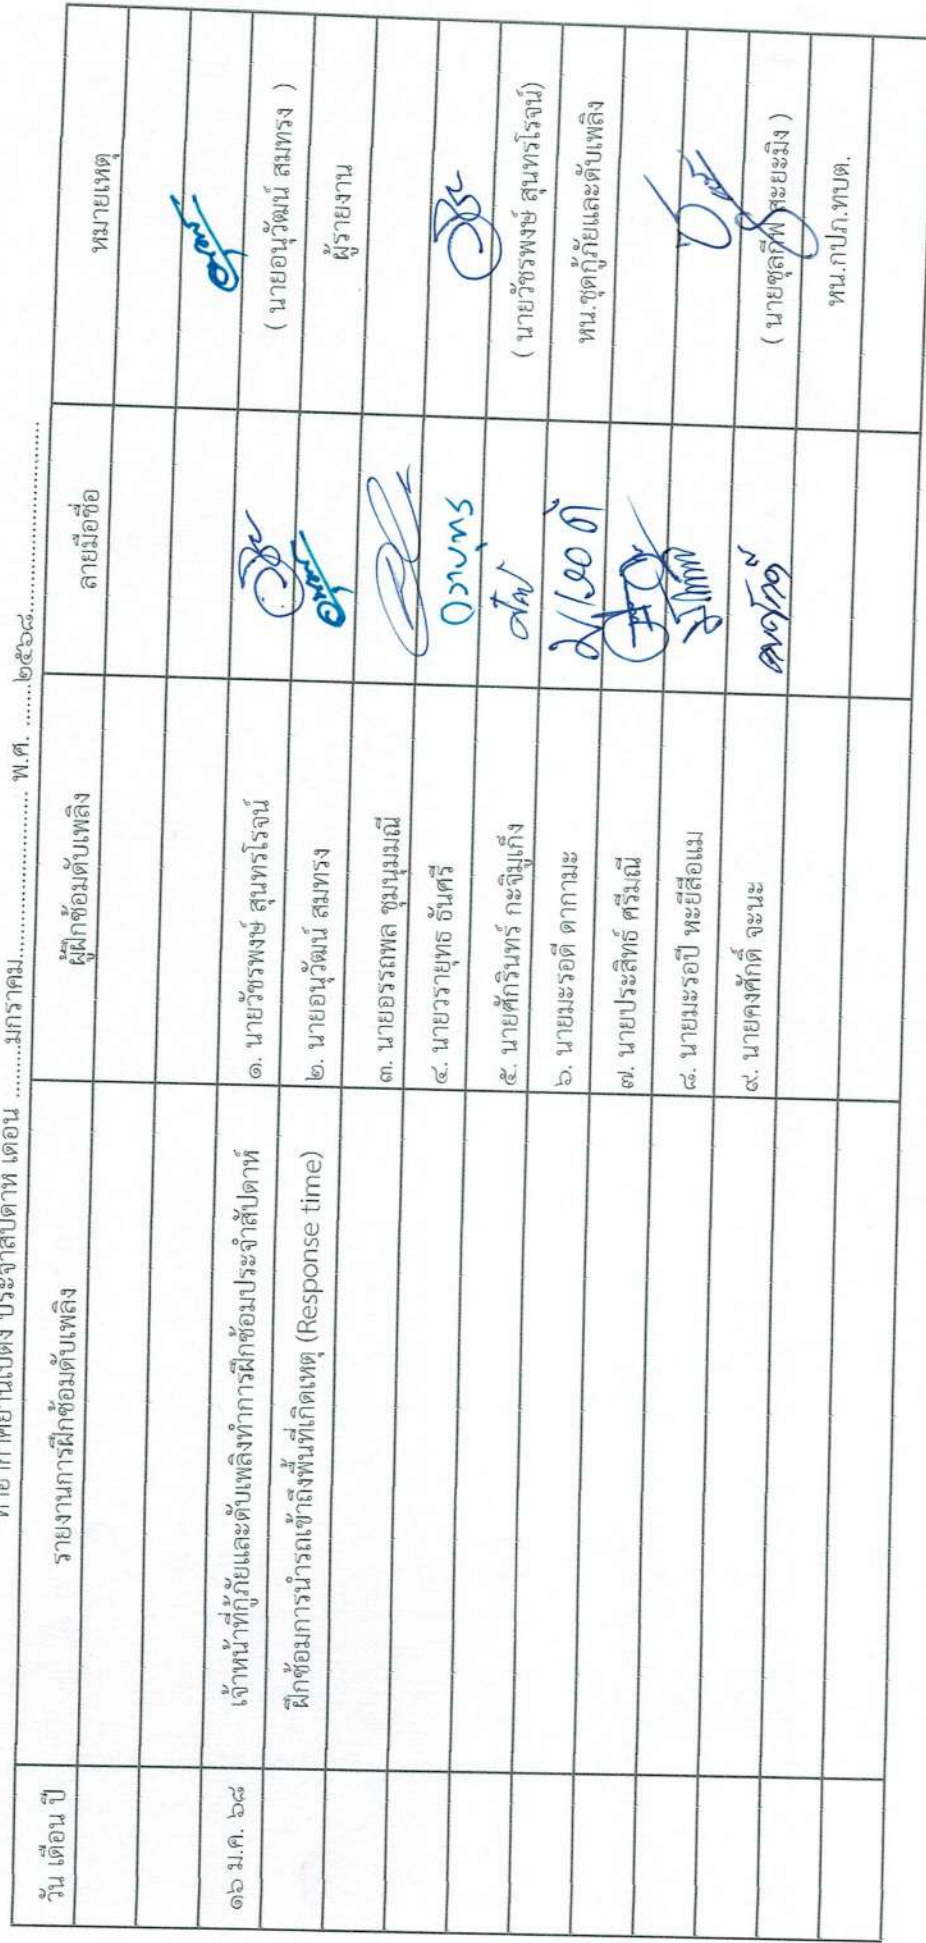 ท่าอากาศยานเบตง ประจำสัปดาห์ เดือน .........มกราคม.................... พ.ศ. .......๒๕๖๘............................
วัน เดือน ปี รายงานการฝึกซ้อมดับเพลิง ผู้ฝึกซ้อมดับเพลิง ลายมือชื่อ หมายเหตุ
๑๖ ม.ค. ๖๘ เจ้าหน้าที่กู้ภัยและดับเพลิงทำการฝึกซ้อมประจำสัปดาห์ ๑. นายวัชรพงษ์ สุนทรโรจน์ ( นายอนุวัฒน์ สมทรง )
ฝึกซ้อมการนำรถเข้าถึงพื้นที่เกิดเหตุ (Response time) ๒. นายอนุวัฒน์ สมทรง ผู้รายงาน
๓. นายอรรถพล ชุมนุมมณี
๔. นายวรายุทธ ธันศรี วรายุทธ
๕. นายศักรินทร์ กะจิมูเก็ง ( นายวัชรพงษ์ สุนทรโรจน์)
๖. นายมะรอดี ดากามะ มะรอดี หน.ชุดกู้ภัยและดับเพลิง
๗. นายประสิทธ์ ศรีมณี
๘. นายมะรอปี หะยีสือแม
๙. นายคงศักดิ์ จะนะ คงศักดิ์ ( นายชุลกีฟ สะยะมิง )
หน.กปภ.ทบต.